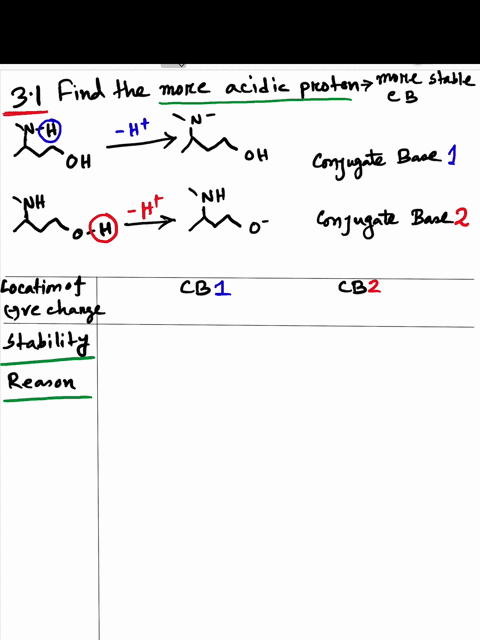 3.1 Find the more acidic proton → more stable CB
N-H -H+ N-
OH OH Conjugate Base 1
NH -H+ NH
O-H O- Conjugate Base 2
Location of (-)ve change CB1 CB2
Stability
Reason